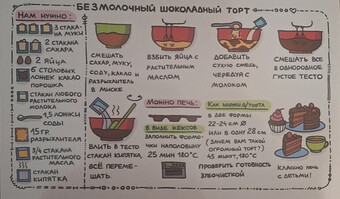 БЕЗМОЛОЧНЫЙ ШОКОЛАДНЫЙ ТОРТ
НАМ НУЖНО:
3 СТАКАНА
МУКИ
2 СТАКАНА
САХАРА
2 ЯЙЦА
6 СТОЛОВЫХ
ЛОЖЕК КАКАО
ПОРОШКА
СТАКАН ЛЮБОГО
РАСТИТЕЛЬНОГО
МОЛОКА
1,5 ЛОЖКИ
СОДЫ
15 ГР.
РАЗРЫХЛИТЕЛЯ
3/4 СТАКАНА
РАСТИТЕЛЬНОГО
МАСЛА
СТАКАН
КИПЯТКА
СМЕШАТЬ
САХАР, МУКУ,
СОДУ, КАКАО И
РАЗРЫХЛИТЕЛЬ
В МИСКЕ
ВЗБИТЬ ЯЙЦА С
РАСТИТЕЛЬНЫМ
МАСЛОМ
ДОБАВИТЬ
СУХУЮ СМЕСЬ,
ЧЕРЕДУЯ С
МОЛОКОМ
СМЕШАТЬ ВСЁ
В ОДНОРОДНОЕ
ГУСТОЕ ТЕСТО
ВЛИТЬ В ТЕСТО
СТАКАН КИПЯТКА,
ВСЁ ПЕРЕМЕ-
ШАТЬ.
МОЖНО ПЕЧЬ:
В ВИДЕ КЕКСОВ
ЗАПОЛНИТЬ ФОРМОЧКИ
НАПОЛОВИНУ
25 МИН 180°C
В ДВЕ ФОРМЫ
22-24 СМ Ø
ИЛИ В ОДНУ 28 СМ
(ЗАЧЕМ ВАМ ТАКОЙ
ОГРОМНЫЙ ТОРТ?)
45 МИНУТ, 180°C
ПРОВЕРИТЬ ГОТОВНОСТЬ
ЗУБОЧИСТКОЙ
КЛАССНО ПЕЧЬ
С ДЕТЬМИ!